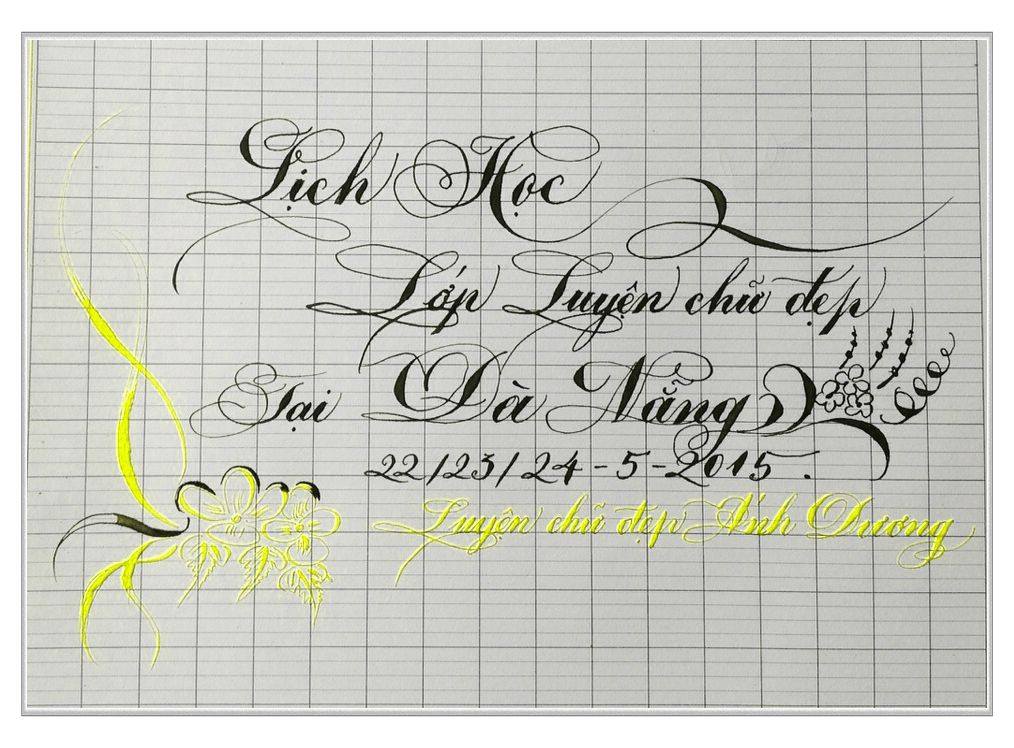 Lịch Học
Lớp Luyện chữ đẹp
Tại Đà Nẵng
22/23/24-5-2015.
Luyện chữ đẹp Ánh Dương